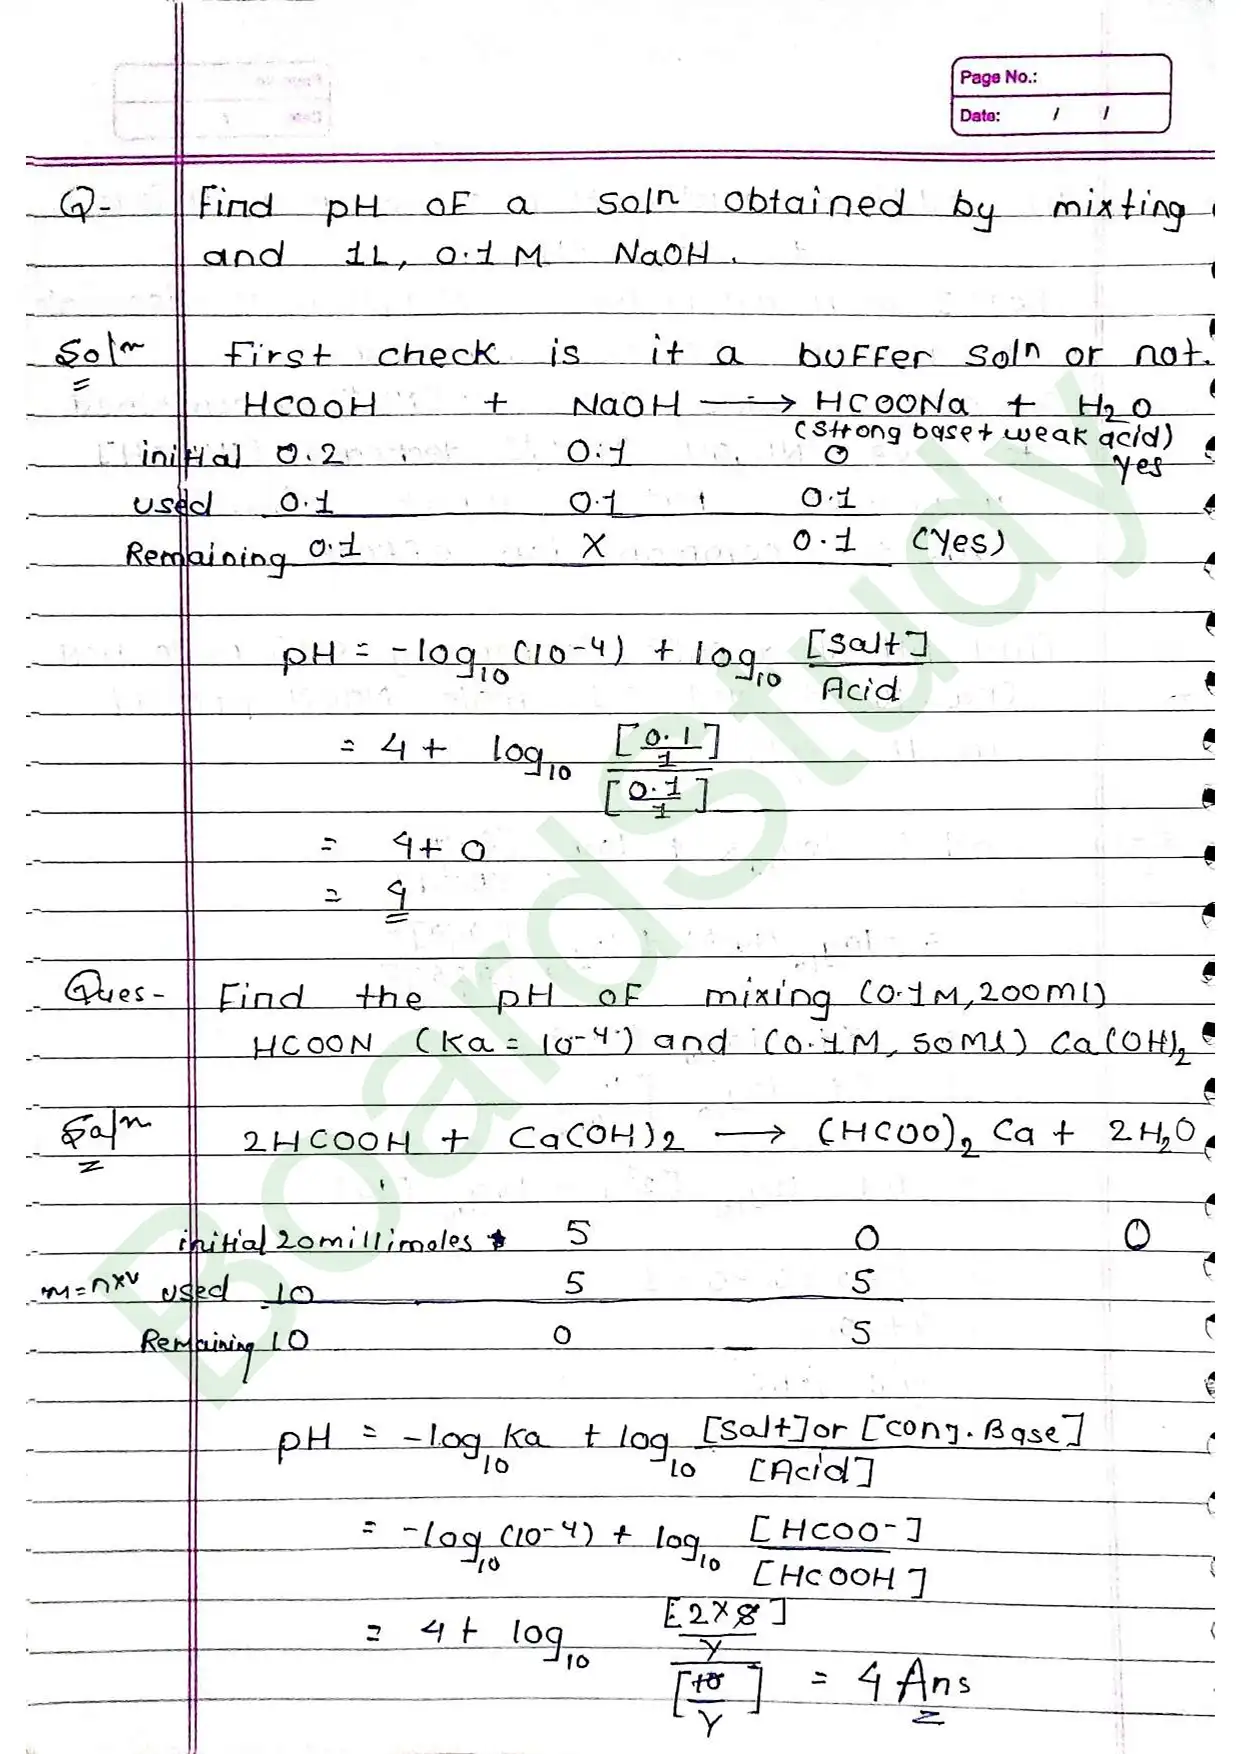 Page No.:
Date: / /
Q- Find pH of a soln obtained by mixting
and 1L, 0.1 M NaOH.
Soln First check is it a buffer soln or not.
HCOOH + NaOH → HCOONa + H2O
(strong base + weak acid)
initial 0.2 0.1 0 yes
used 0.1 0.1 0.1
Remaining 0.1 X 0.1 (yes)
pH = -log10 (10-4) + log10 [Salt]/Acid
= 4 + log10 [0.1/1]/[0.1/1]
= 4 + 0
= 4
Ques- Find the pH of mixing (0.1M, 200ml)
HCOON (Ka = 10-4) and (0.1M, 50Ml) Ca(OH)2
Soln 2HCOOH + Ca(OH)2 → (HCOO)2 Ca + 2H2O
initial 20 millimoles 5 0 0
m = n×v used 10 5 5
Remaining 10 0 5
pH = -log10 Ka + log10 [Salt] or [conj. Base]/[Acid]
= -log10 (10-4) + log10 [HCOO-]/[HCOOH]
= 4 + log10 [2×5/V]/[10/V] = 4 Ans
BoardStudy